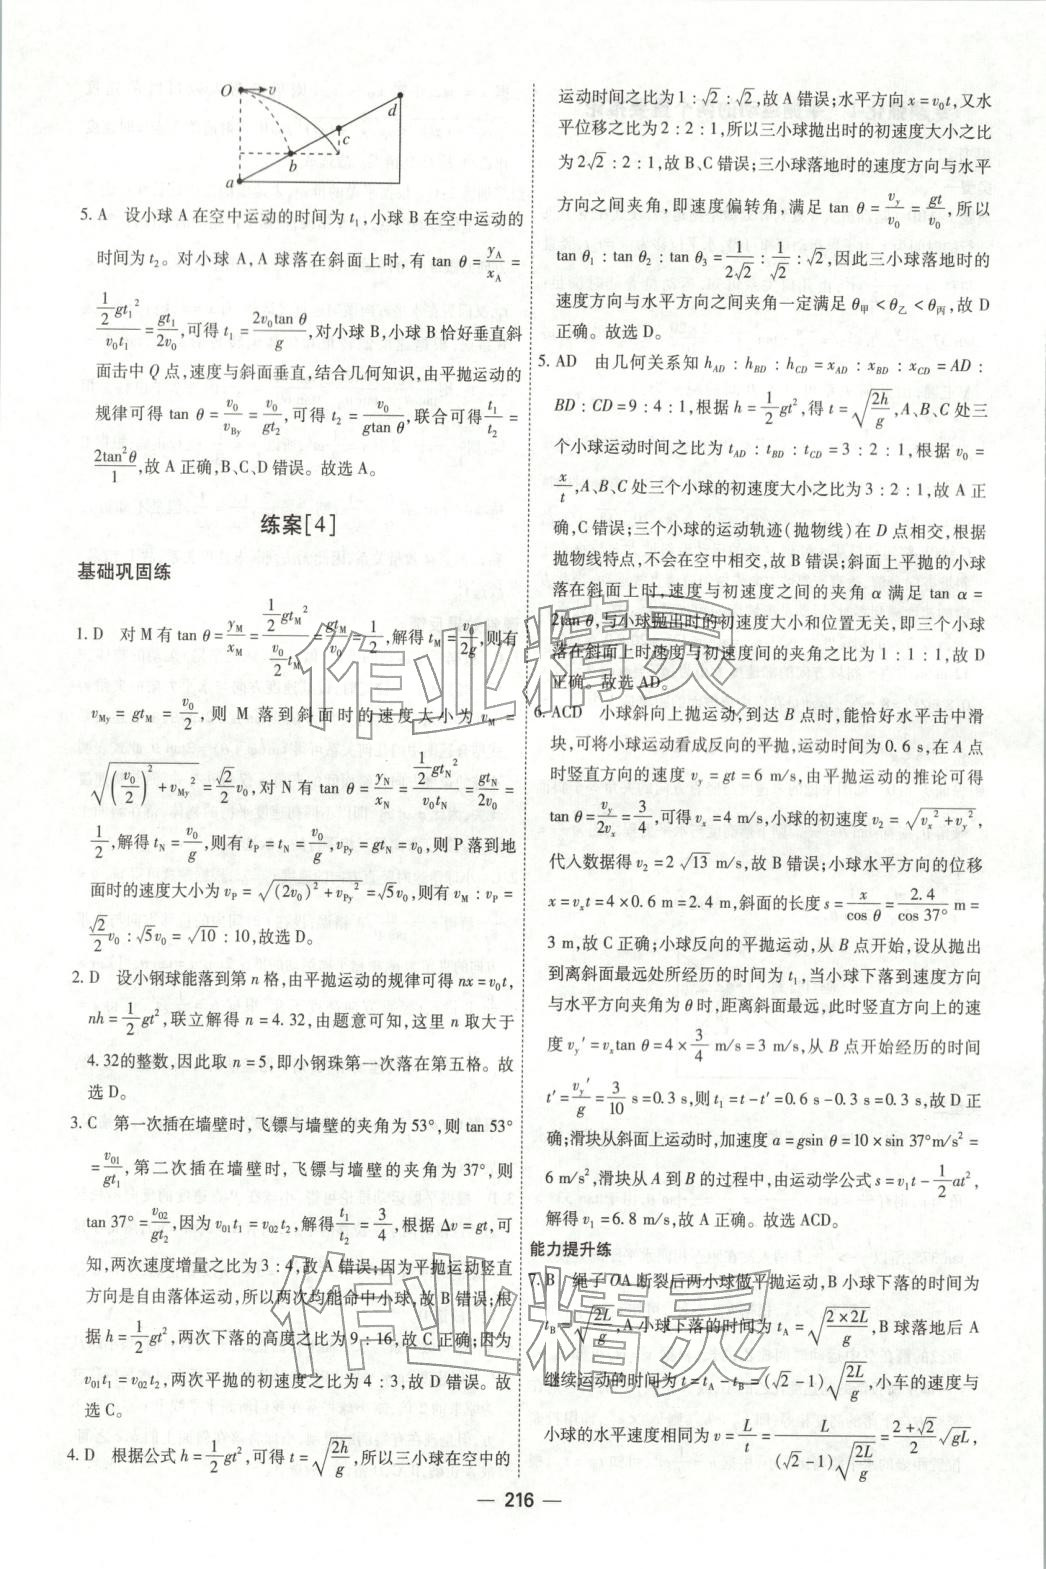 O v d c b a
5. A 设小球 A 在空中运动的时间为 t₁,小球 B 在空中运动的
时间为 t₂。对小球 A,A 球落在斜面上时,有 tan θ = y_A/x_A =
(1/2 gt₁²)/(v₀t₁) = gt₁/2v₀,可得 t₁ = 2v₀tan θ/g,对小球 B,小球 B 恰好垂直斜
面击中 Q 点,速度与斜面垂直,结合几何知识,由平抛运动的
规律可得 tan θ = v₀/v_By = v₀/gt₂,可得 t₂ = v₀/gtan θ,联合可得 t₁/t₂ =
2tan²θ/1,故 A 正确,B、C、D 错误。故选 A。
练案[4]
基础巩固练
1. D 对 M 有 tan θ = y_M/x_M = (1/2 gt_M²)/(v₀/2 t_M) = gt_M/v₀ = 1/2,解得 t_M = v₀/2g,则有
v_My = gt_M = v₀/2,则 M 落到斜面时的速度大小为 v_M =
√((v₀/2)² + v_My²) = √2/2 v₀,对 N 有 tan θ = y_N/x_N = (1/2 gt_N²)/(v₀t_N) = gt_N/2v₀ =
1/2,解得 t_N = v₀/g,则有 t_P = t_N = v₀/g,v_Py = gt_N = v₀,则 P 落到地
面时的速度大小为 v_P = √((2v₀)² + v_Py²) = √5v₀,则有 v_M : v_P =
√2/2 v₀ : √5v₀ = √10 : 10,故选 D。
2. D 设小钢球能落到第 n 格,由平抛运动的规律可得 nx = v₀t,
nh = 1/2 gt²,联立解得 n = 4.32,由题意可知,这里 n 取大于
4.32的整数,因此取 n = 5,即小钢珠第一次落在第五格。故
选 D。
3. C 第一次插在墙壁时,飞镖与墙壁的夹角为 53°,则 tan 53°
= v₀₁/gt₁,第二次插在墙壁时,飞镖与墙壁的夹角为 37°,则
tan 37° = v₀₂/gt₂,因为 v₀₁t₁ = v₀₂t₂,解得 t₁/t₂ = 3/4,根据 Δv = gt,可
知,两次速度增量之比为 3 : 4,故 A 错误;因为平抛运动竖直
方向是自由落体运动,所以两次均能命中小球,故 B 错误;根
据 h = 1/2 gt²,两次下落的高度之比为 9 : 16,故 C 正确;因为
v₀₁t₁ = v₀₂t₂,两次平抛的初速度之比为 4 : 3,故 D 错误。故
选 C。
4. D 根据公式 h = 1/2 gt²,可得 t = √(2h/g),所以三小球在空中的
运动时间之比为 1 : √2 : √2,故 A 错误;水平方向 x = v₀t,又水
平位移之比为 2 : 2 : 1,所以三小球抛出时的初速度大小之比
为 2√2 : 2 : 1,故 B、C 错误;三小球落地时的速度方向与水平
方向之间夹角,即速度偏转角,满足 tan θ = v_y/v₀ = gt/v₀,所以
tan θ₁ : tan θ₂ : tan θ₃ = 1/2√2 : 1/√2 : √2,因此三小球落地时的
速度方向与水平方向之间夹角一定满足 θ甲 < θ乙 < θ丙,故 D
正确。故选 D。
5. AD 由几何关系知 h_AD : h_BD : h_CD = x_AD : x_BD : x_CD = AD :
BD : CD = 9 : 4 : 1,根据 h = 1/2 gt²,得 t = √(2h/g),A、B、C 处三
个小球运动时间之比为 t_AD : t_BD : t_CD = 3 : 2 : 1,根据 v₀ =
x/t,A、B、C 处三个小球的初速度大小之比为 3 : 2 : 1,故 A 正
确,C 错误;三个小球的运动轨迹(抛物线)在 D 点相交,根据
抛物线特点,不会在空中相交,故 B 错误;斜面上平抛的小球
落在斜面上时,速度与初速度之间的夹角 α 满足 tan α =
2tan θ,与小球抛出时的初速度大小和位置无关,即三个小球
落在斜面上时速度与初速度间的夹角之比为 1 : 1 : 1,故 D
正确。故选 AD。
6. ACD 小球斜向上抛运动,到达 B 点时,能恰好水平击中滑
块,可将小球运动看成反向的平抛,运动时间为 0.6 s,在 A 点
时竖直方向的速度 v_y = gt = 6 m/s,由平抛运动的推论可得
tan θ = v_y/2v_x = 3/4,可得 v_x = 4 m/s,小球的初速度 v₂ = √(v_x² + v_y²),
代入数据得 v₂ = 2√13 m/s,故 B 错误;小球水平方向的位移
x = v_xt = 4 × 0.6 m = 2.4 m,斜面的长度 s = x/cos θ = 2.4/cos 37° m =
3 m,故 C 正确;小球反向的平抛运动,从 B 点开始,设从抛出
到离斜面最远处所经历的时间为 t₁,当小球下落到速度方向
与水平方向夹角为 θ 时,距离斜面最远,此时竖直方向上的速
度 v_y′ = v_xtan θ = 4 × 3/4 m/s = 3 m/s,从 B 点开始经历的时间
t′ = v_y′/g = 3/10 s = 0.3 s,则 t₁ = t - t′ = 0.6 s - 0.3 s = 0.3 s,故 D 正
确;滑块从斜面上运动时,加速度 a = gsin θ = 10 × sin 37°m/s² =
6 m/s²,滑块从 A 到 B 的过程中,由运动学公式 s = v₁t - 1/2 at²,
解得 v₁ = 6.8 m/s,故 A 正确。故选 ACD。
能力提升练
7. B 绳子 OA 断裂后两小球做平抛运动,B 小球下落的时间为
t_B = √(2L/g),A 小球下落的时间为 t_A = √(2×2L/g),B 球落地后 A
继续运动的时间为 t = t_A - t_B = (√2 - 1)√(2L/g),小车的速度与
小球的水平速度相同为 v = L/t = L/((√2 - 1)√(2L/g)) = (2 + √2)/2 √gL,
— 216 —
作业精灵
作业精灵